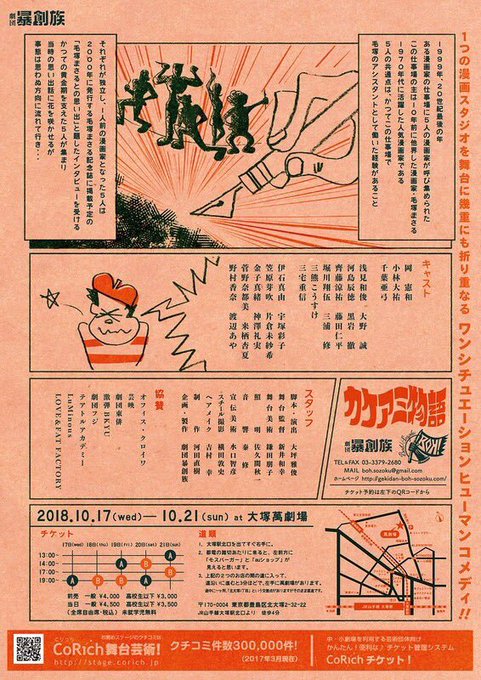 劇団 暴創族
1つの漫画スタジオを舞台に幾重にも折り重なる ワンシチュエーションヒューマンコメディ!!
1999年、20世紀最後の年
ある漫画家の仕事場に5人の漫画家が呼び集められた
この仕事場の主は10年前に他界した漫画家・毛塚まさる
1970年代に活躍した人気漫画家である
5人の共通点は、かつてこの仕事場で
毛塚のアシスタントとして働いた経験があること
それぞれが独立し、1人前の漫画家となった5人は
2000年に発行する毛塚まさる記念誌に掲載予定の
「毛塚まさるとの思い出」と題したインタビューを受ける
かつての黄金期を支えた5人が集まり
当時の思い出話に花を咲かせるが
事態は思わぬ方向に流れて行き・・・
キャスト
岡 憲和
小林大祐
千葉亜弓
浅見和俊 大野 誠
河島辰徳 黒岩 徹
齊藤涼祐 藤田仁平
堀川翔伍 三浦 修
三熊こうすけ
三宅重信
伊石真由 宇塚彩子
笠原芽吹 片倉未紗希
金子真緒 神澤礼実
菅野奈都美 来栖杏夏
野村香奈 渡辺あや
スタッフ
脚本・演出 大坪雅俊
舞台監督 新井和幸
舞台美術 鎌田朋子
照 明 佐久間秋一
音 響 泰 修
宣伝美術 水口智彦
スチール撮影 横田敦史
ヘアメイク 吉村 幸
制 作 河田直樹
企画・製作 劇団暴創族
協賛
オフィス・クロイワ
芸映
劇団東俳
激弾BKYU
劇団フジ
テアトルアカデミー
LuMinous
LOVE&FAT FACTORY
カケアミ物語
劇団 暴創族
TEL&FAX 03-3379-2680
MAIL boh.sozoku@gmail.com
ホームページ http://gekidan-boh-sozoku.com/
チケット予約は左下のQRコードから
2018.10.17(wed)—10.21(sun) at 大塚萬劇場
チケット
17日(wed) 18日(thu) 19日(fri) 20日(sat) 21日(sun)
13:00 A
14:00 B B
17:00 B
19:00 A A B A
前売 一般 ¥4,000 高校生以下 ¥3,000
当日 一般 ¥4,500 高校生以下 ¥3,500
(全席自由席・税込) 未就学児無料
道順
1. 大塚駅北口を出てすぐ右手に。
2. 都電の踏切あたりに来ると、左前方に
「モスバーガー」と「auショップ」が
見えると思います。
3. 上記の2つのお店の間の道に入って、
道沿いに進むと3分ほどで、左手に萬劇場があります。
〒170-0004 東京都豊島区北大塚2-32-22
JR山手線大塚駅北口より 徒歩4分
萬劇場
お薦めステージのクチコミは
こりっち
CoRich舞台芸術!
http://stage.corich.jp
クチコミ件数300,000件!
(2017年3月現在)
中・小劇場を利用する芸術団体向け
かんたん!便利な♪チケット管理システム
CoRich チケット!